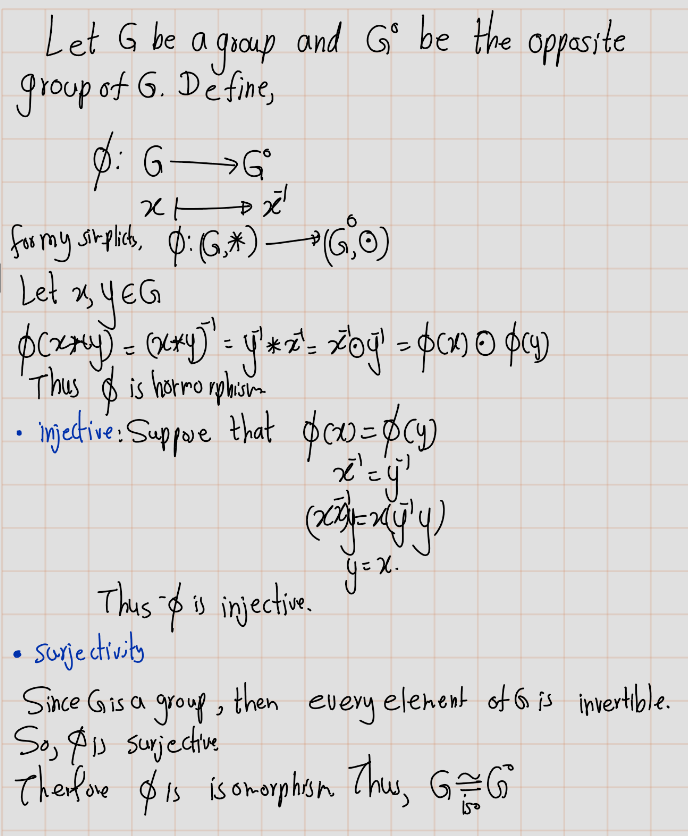 Let G be a group and G° be the opposite
group of G. Define,
ϕ: G ⟶ G°
x ⟼ x⁻¹
for my simplicity, ϕ:(G,*) ⟶ (G°,⊙)
Let x, y ∈ G
ϕ(x*y) = (x*y)⁻¹ = y⁻¹ * x⁻¹ = x⁻¹ ⊙ y⁻¹ = ϕ(x) ⊙ ϕ(y)
Thus ϕ is homorphism
• injective: Suppose that ϕ(x) = ϕ(y)
x⁻¹ = y⁻¹
(xx⁻¹)y = x(y⁻¹y)
y = x.
Thus ϕ is injective.
• surjectivity
Since G is a group, then every element of G is invertible.
So, ϕ is surjective
Therfore ϕ is isomorphism Thus, G ≅ G°
iso